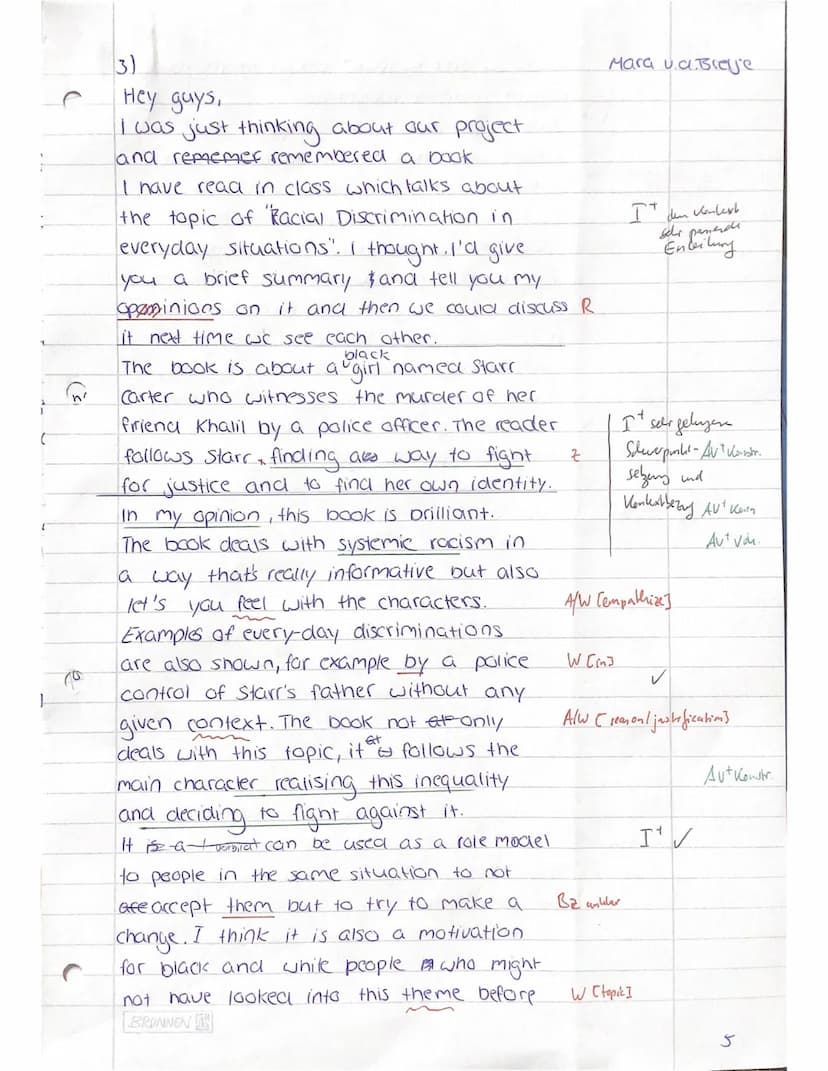 3) Mara v.d.
Hey guys,
I was just thinking about our project
and rememer remembered a book
I have read in class which talks about
the topic of "Racial Discrimination in I+ dem Kontext
everyday situations". I thought, I'd give sehr passende Einleitung
you a brief summary and tell you my
oppinions on it and then we could discuss R
it next time we see each other.
The book is about a black girl named Starr
Carter who witnesses the murder of her
friend Khalil by a police officer. The reader I+ sehr gelungene
follows Starr, finding a way to fight Z Schwerpunkt- AV+ Konstr.
for justice and to find her own identity. setzung und
In my opinion, this book is brilliant. Kontextbezug AV+
The book deals with systemic racism in AV+
a way that's really informative but also
let's you feel with the characters. A/W [empathize]
Examples of every-day discriminations
are also shown, for example by a police W [in]
control of Starr's father without any ✓
given context. The book not only A/W [reason/justification]
deals with this topic, it follows the
main character realising this inequality AV+ Konstr.
and deciding to fight against it.
It is a can be used as a role model I+ ✓
to people in the same situation to not
are accept them but to try to make a Bz unklar
change. I think it is also a motivation
for black and white people who might
not have looked into this theme before W [topic]
BRUNNEN
5